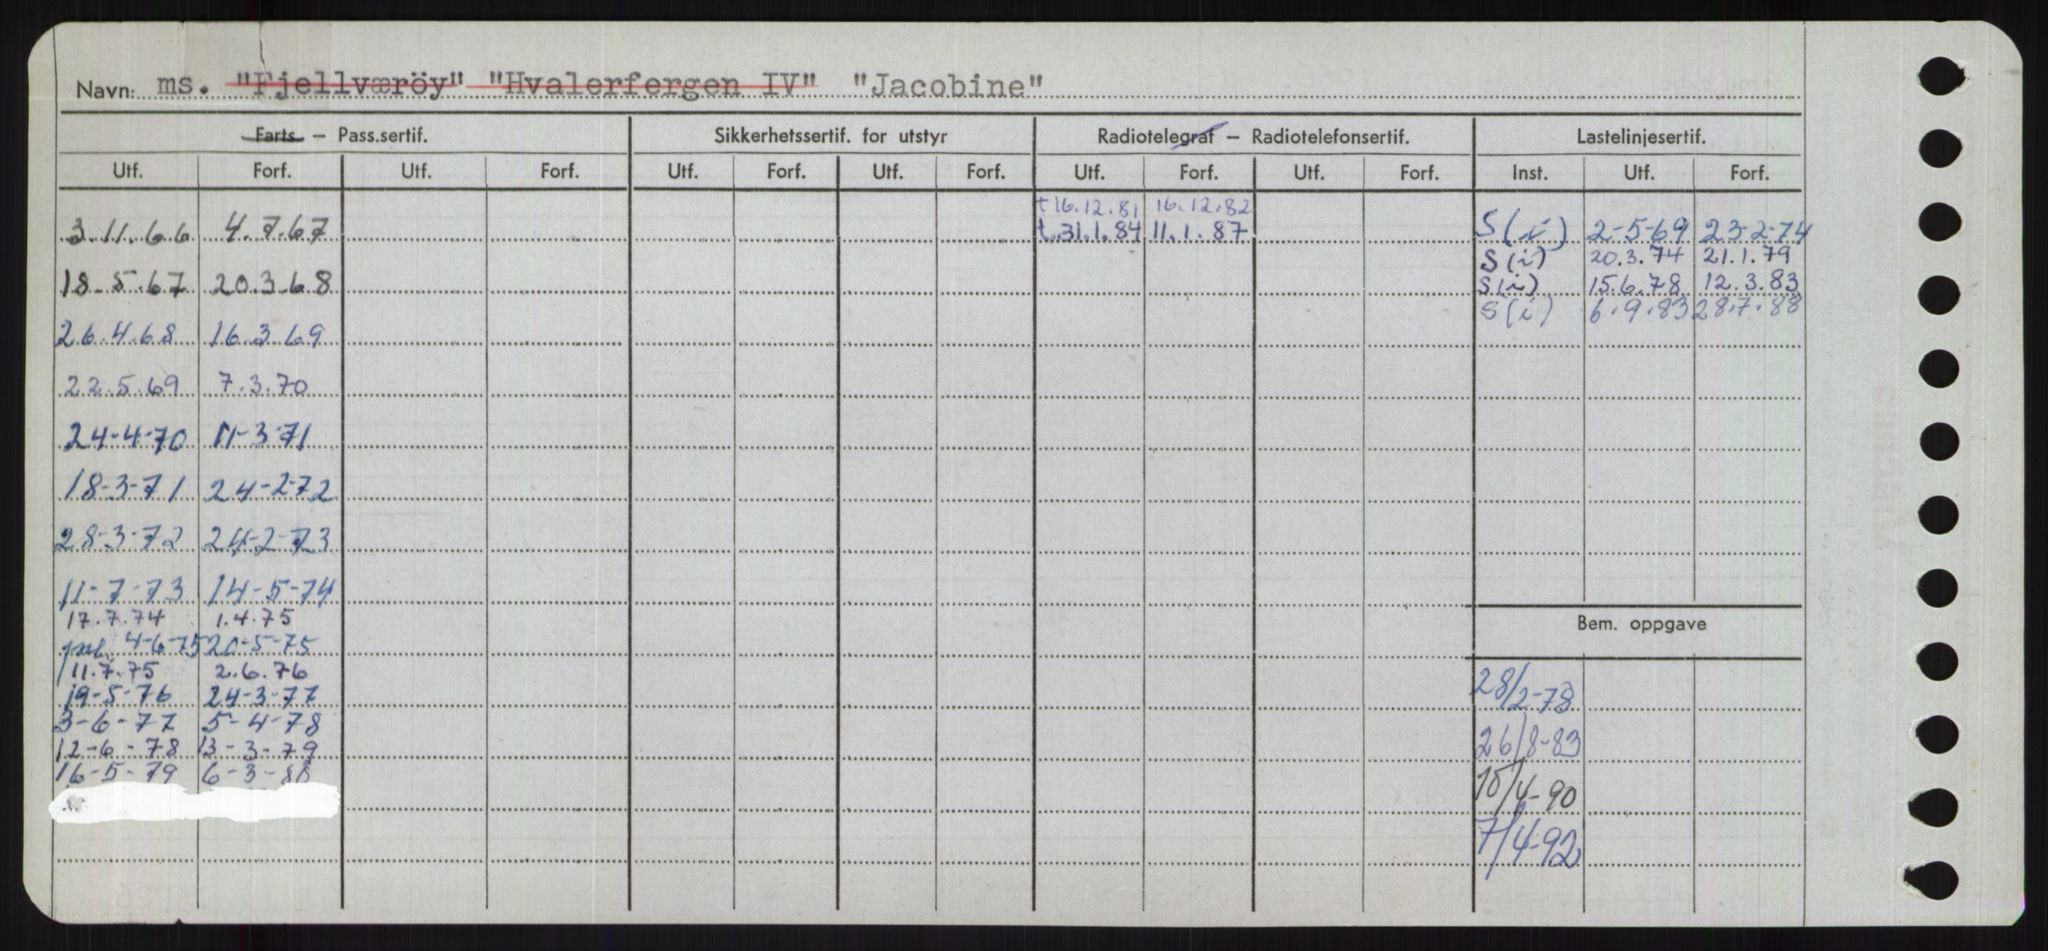 Navn: ms. "Fjellværöy" "Hvalerfergen IV" "Jacobine"
Farts - Pass.sertif. Sikkerhetssertif. for utstyr Radiotelegraf - Radiotelefonsertif. Lastelinjesertif.
Utf. Forf. Utf. Forf. Utf. Forf. Utf. Forf. Utf. Forf. Utf. Forf. Inst. Utf. Forf.
t 16.12.81 16.12.82
3.11.66 4.7.67 t.31.1.84 11.1.87 S(i) 2-5-69 23-2-74
S(i) 20.3.74 21.1.79
18.5.67 20.3.68 S(i) 15.6.78 12.3.83
S(i) 6.9.83 28.7.88
26.4.68 16.3.69
22.5.69 7.3.70
24-4-70 11-3-71
18-3-71 24-2-72
28-3-72 24-2-73
11-7-73 14-5-74
17.7.74 1.4.75
Bem. oppgave
4-6-75 20-5-75
11.7.75 2.6.76
19-5-76 24-3-77 28/2-78
3-6-77 5-4-78
12-6-78 13-3-79 26/8-83
16-5-79 6-3-88
10/4-90
7/4-92